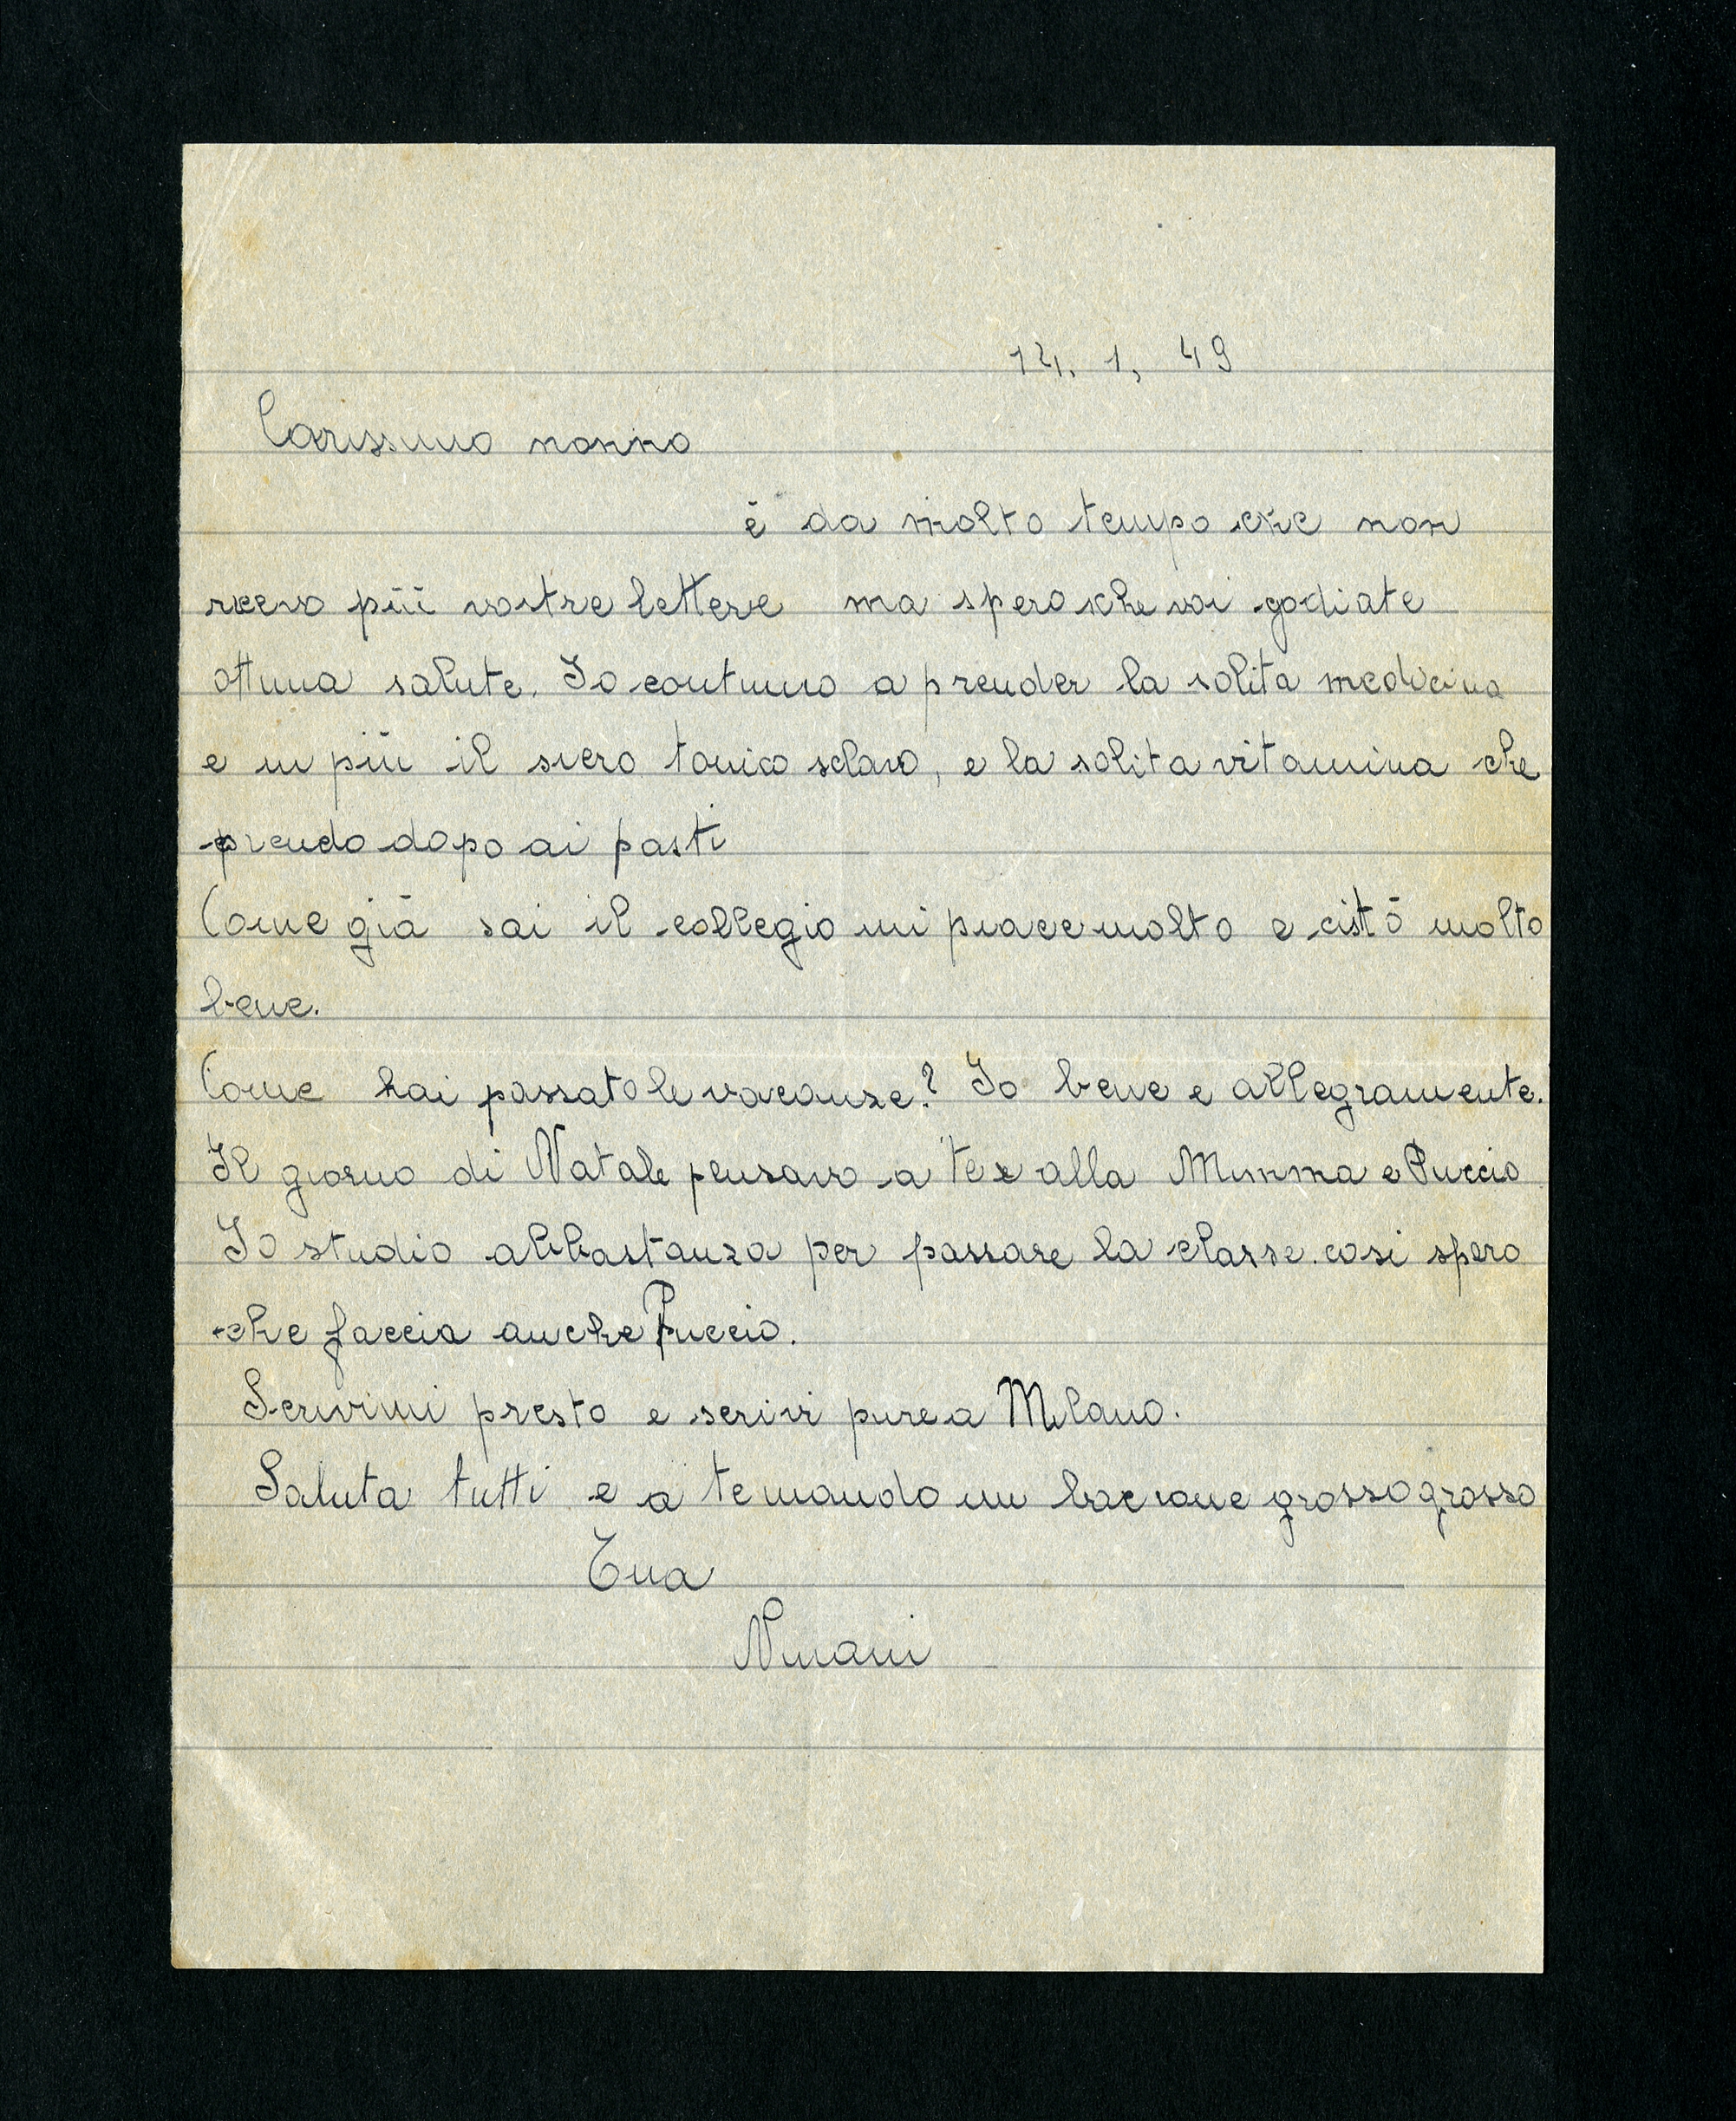 14. 1, 49
Carissimo nonno
è da molto tempo che non
ricevo più vostre lettere ma spero che voi godiate
ottima salute. Io continuo a prender la solita medicina
e in più il siero tonico sclavo, e la solita vitamina che
prendo dopo ai pasti
Come già sai il collegio mi piace molto e ci stò molto
bene.
Come hai passato le vacanze? Io bene e allegramente.
Il giorno di Natale pensavo a te e alla Mimma e Puccio
Io studio abbastanza per passare la classe. così spero
che faccia anche Puccio.
Scrivimi presto e scrivi pure a Milano.
Saluta tutti e a te mando un bacione grosso grosso
Tua
Ninani